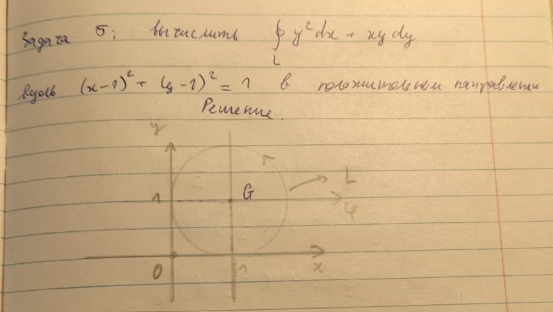 Задача 5: вычислить ∮ y² dx + xy dy
L
вдоль (x-1)² + (y-1)² = 1 в положительном направлении
Решение.
y
L
1
G
φ
0
1
x